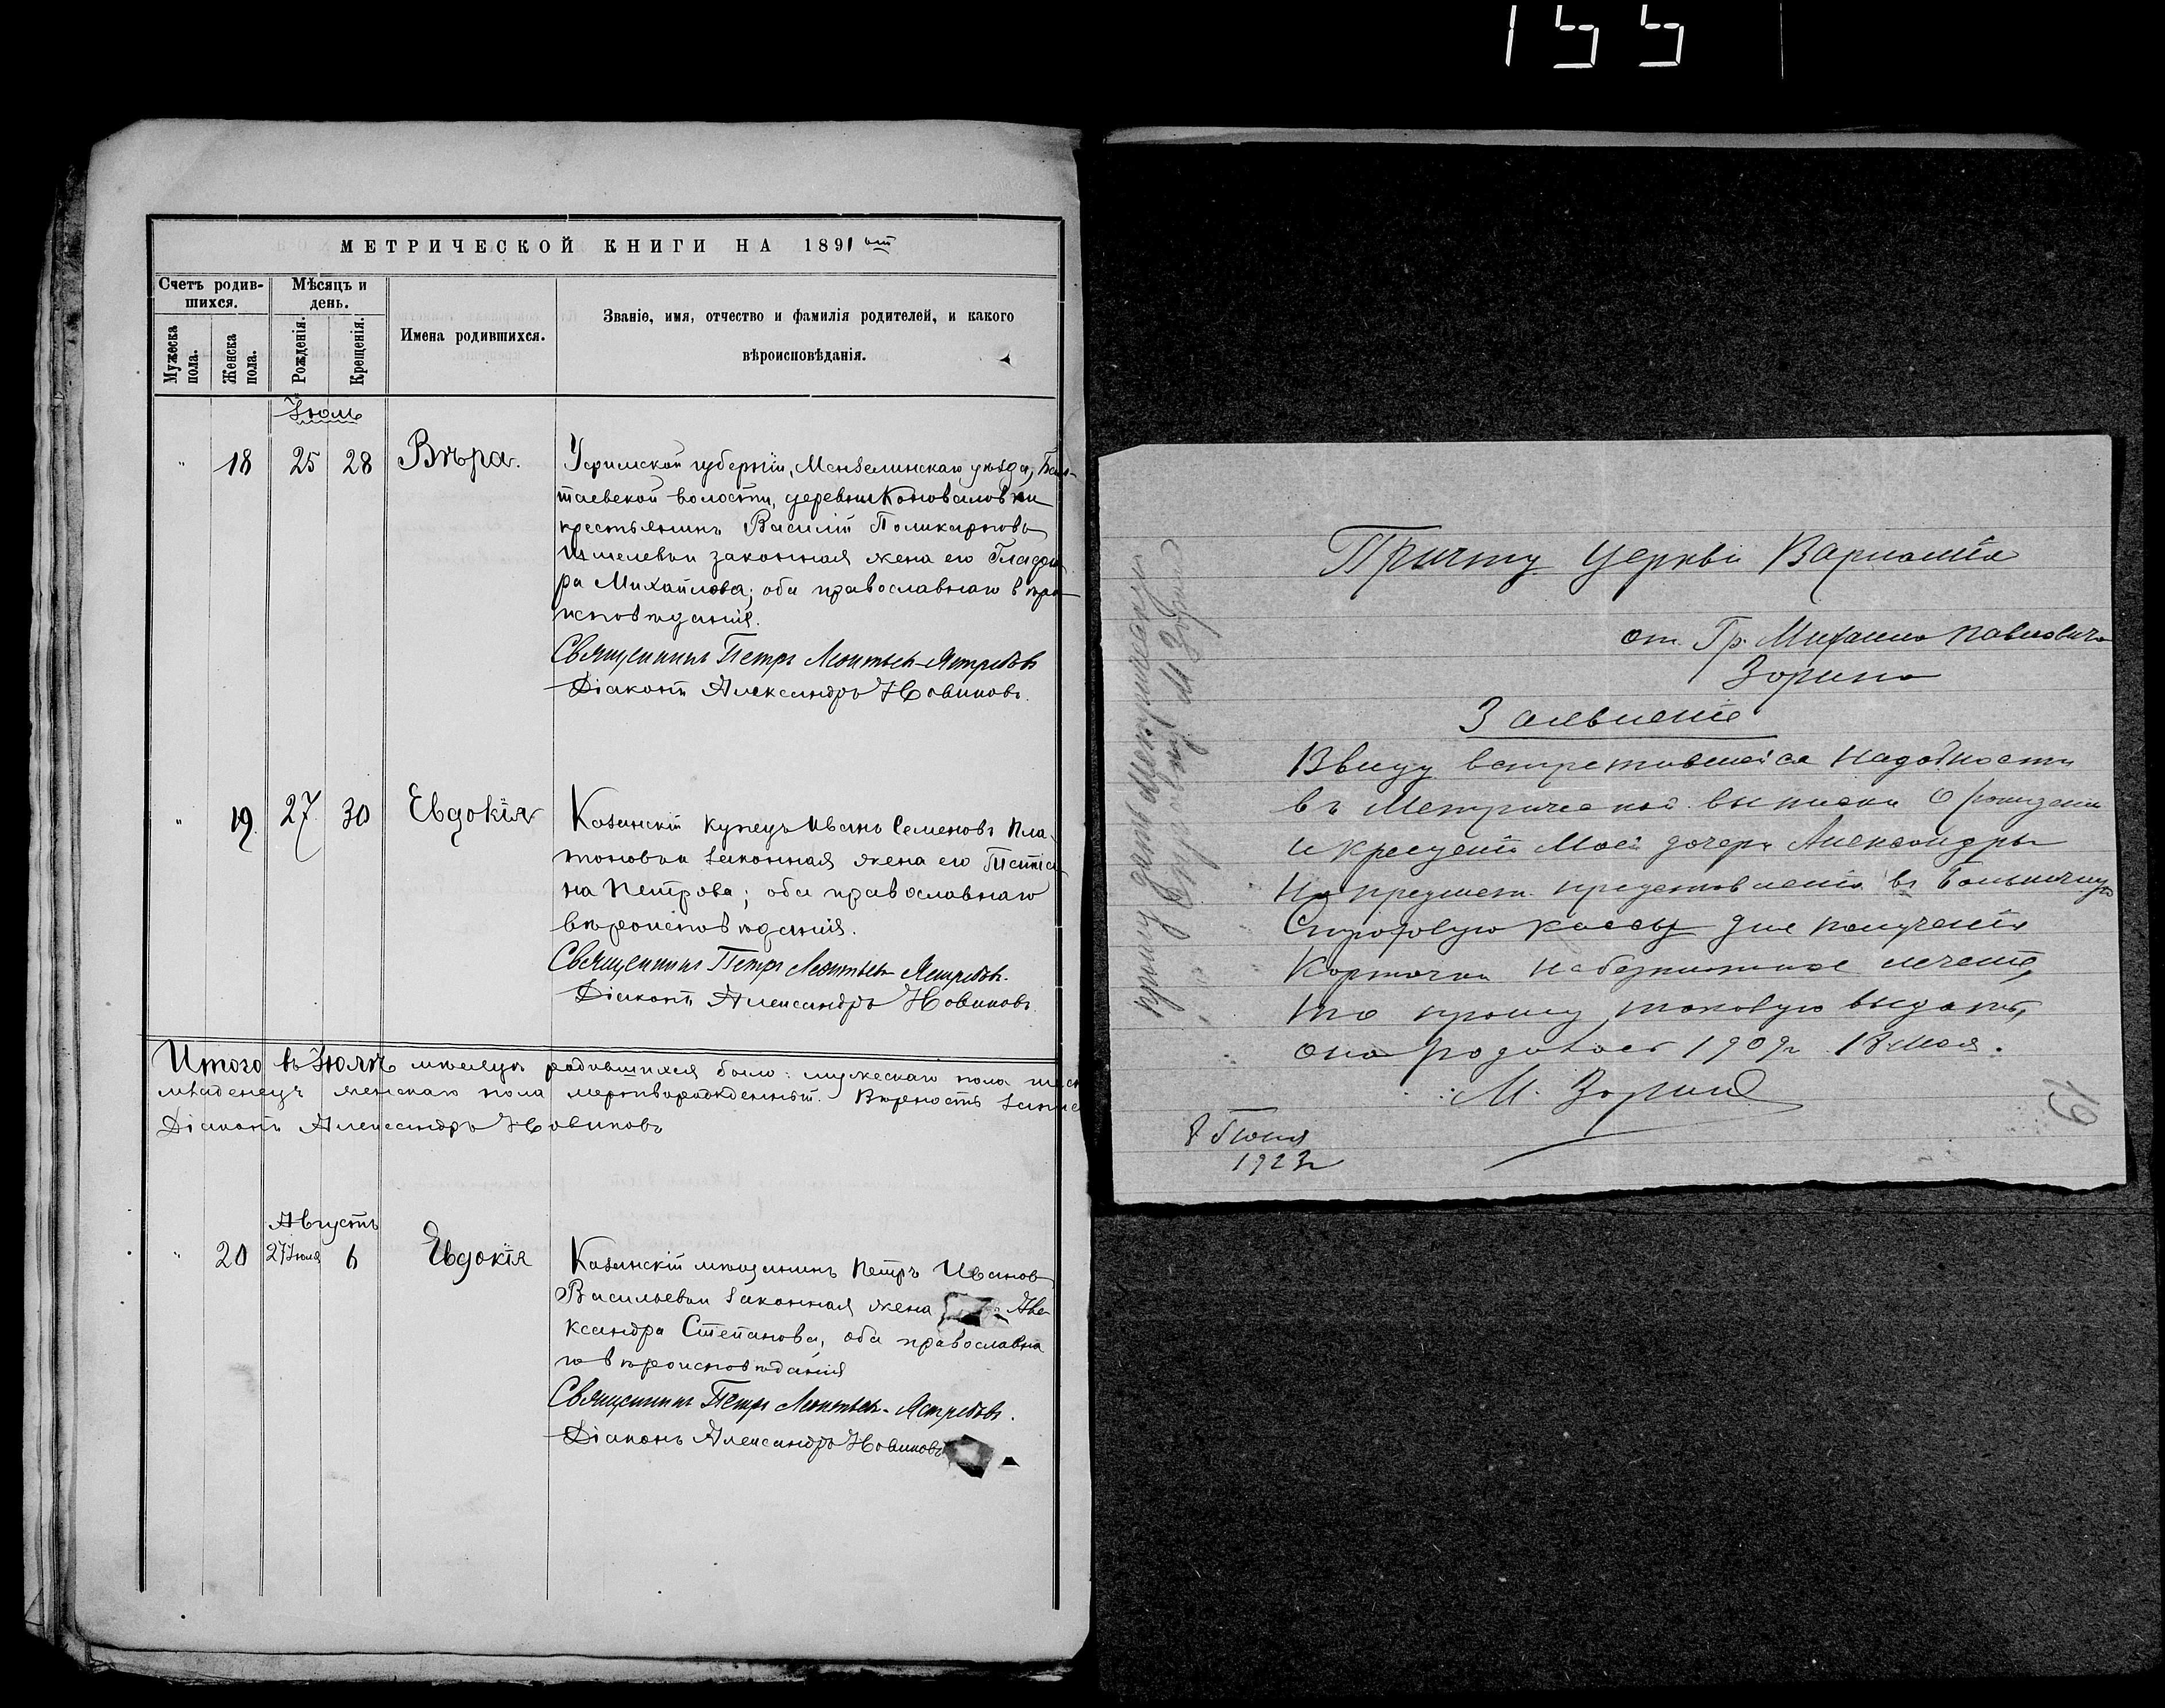 155
МЕТРИЧЕСКОЙ КНИГИ НА 1891
Счетъ родив-
шихся.
Мѣсяцъ и
день.
Мужеска
пола.
Женска
пола.
Рожденія.
Крещенія.
Имена родившихся.
Званіе, имя, отчество и фамилія родителей, и какого
вѣроисповѣданія.
Іюль
" 18 25 28 Вѣра.
Уфимской губерніи, Мензелинскаго уѣзда,
волости, деревни Коноваловки
крестьянинъ Василій Поликарповъ
законная жена его Глафи
ра Михайлова; оба православнаго вѣро
исповѣданія.
Священникъ Петръ Леонтьев-Ястребовъ
Діаконъ Александръ Новиковъ.
" 19. 27. 30 Евдокія
Казанскій купецъ Иванъ Семеновъ Пла
тоновъ и законная жена его Татіа
на Петрова; оба православнаго
вѣроисповѣданія.
Священникъ Петръ Леонтьев-Ястребовъ.
Діаконъ Александръ Новиковъ.
Итого въ Іюлѣ мѣсяцѣ родившихся было: мужескаго пола
младенецъ женскаго пола мертворожденный. Вѣрность
Діаконъ Александръ Новиковъ
Августъ
" 20 27 Іюля 6 Евдокія
Казанскій мѣщанинъ Петръ Иванов
Васильевъ и законная жена Але
ксандра Степанова, оба православна
го вѣроисповѣданія
Священникъ Петръ Леонтьев-Ястребовъ.
Діаконъ Александръ Новиковъ
Причту Церкви Варлаама
от Гр. Михаила Павловича
Зорина
Заявленіе
Ввиду встретившейся надобности
въ Метрической выписки о рождении
и крещеніи Моей дочери Александры
на предмет предетовленія въ Больничную
Страховую кассы для полученія
Карточки на безплатное леченіе,
то прошу таковую выдать,
она родилась 1909г. 18 мая.
М. Зорин
8 Июня
1923г
прошу дать Метрическую
М Зорин
19